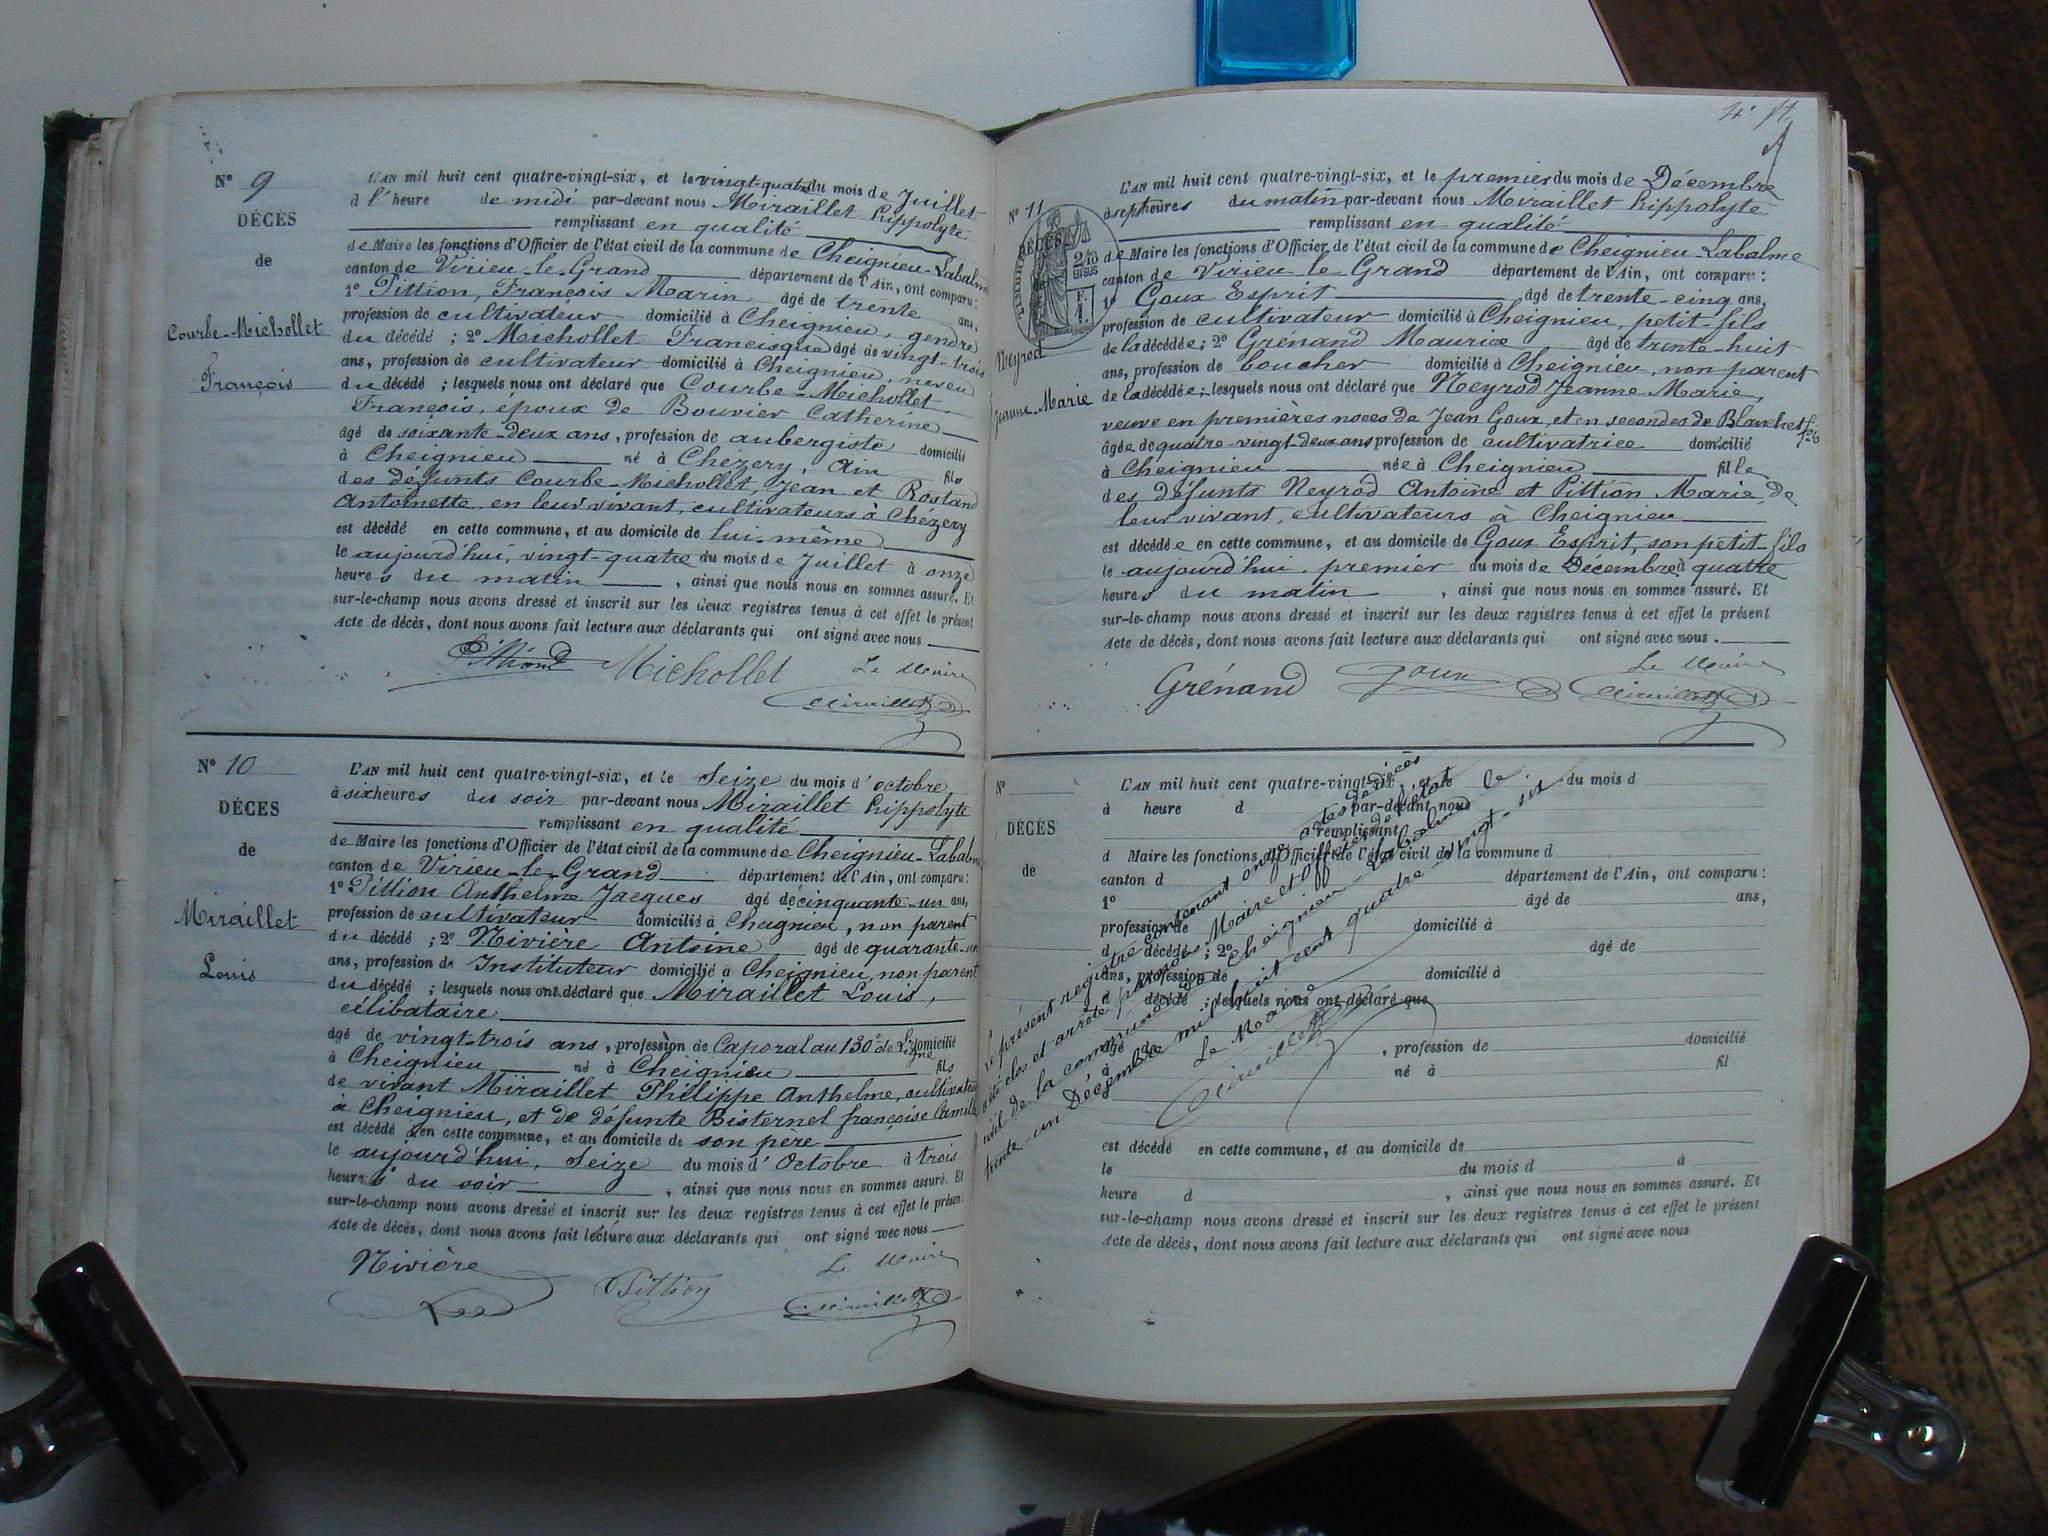 N° 9
DÉCÈS
de
Courbe-Michollet
François
L'AN mil huit cent quatre-vingt-six, et le vingt-quatre du mois de Juillet
à l'heure de midi par-devant nous Miraillet hippolyte
remplissant en qualité
de Maire les fonctions d'Officier de l'état civil de la commune de Cheignieu-Labalme
canton de Virieu-le-Grand département de l'Ain, ont comparu :
1° Pittion, François Marin âgé de trente ans,
profession de cultivateur domicilié à Cheignieu, gendre
du décédé ; 2° Michollet Francisque âgé de vingt-trois
ans, profession de cultivateur domicilié à Cheignieu, neveu
du décédé ; lesquels nous ont déclaré que Courbe-Michollet
François, époux de Bouvier Catherine
âgé de soixante-deux ans, profession de aubergiste domicilié
à Cheignieu né à Chézery, Ain fils
des défunts Courbe-Michollet, Jean et Rostand
Antoinette, en leur vivant, cultivateurs à Chézery
est décédé en cette commune, et au domicile de lui-même
le aujourd'hui, vingt-quatre du mois de Juillet à onze
heures du matin , ainsi que nous nous en sommes assuré. Et
sur-le-champ nous avons dressé et inscrit sur les deux registres tenus à cet effet le présent
Acte de décès, dont nous avons fait lecture aux déclarants qui ont signé avec nous
Pittion Michollet Le Maire
Miraillet
N° 10
DÉCES
de
Miraillet
Louis
L'AN mil huit cent quatre-vingt-six, et le Seize du mois d'octobre
à six heures du soir par-devant nous Miraillet hippolyte
remplissant en qualité
de Maire les fonctions d'Officier de l'état civil de la commune de Cheignieu-Labalme
canton de Virieu-le-Grand département de l'Ain, ont comparu :
1° Pittion Anthelme Jacques âgé de cinquante-un ans,
profession de cultivateur domicilié à Cheignieu, non parent
du décédé ; 2° Nivière Antoine âgé de quarante-un
ans, profession de Instituteur domicilié à Cheignieu, non parent
du décédé ; lesquels nous ont déclaré que Miraillet Louis,
célibataire
âgé de vingt-trois ans, profession de Caporal au 130e de Ligne domicilié
à Cheignieu né à Cheignieu fils
de vivant Miraillet Philippe Anthelme, cultivateur
à Cheignieu, et de défunte Bisternel françoise Camille
est décédé en cette commune, et au domicile de son père
le aujourd'hui, Seize du mois d'Octobre à trois
heures du soir , ainsi que nous nous en sommes assuré. Et
sur-le-champ nous avons dressé et inscrit sur les deux registres tenus à cet effet le présent
Acte de décès, dont nous avons fait lecture aux déclarants qui ont signé avec nous
Nivière Pittion Le Maire
Miraillet
N° 11
DÉCÈS
2/10
EN SUS
Neyrod
Jeanne-Marie
L'AN mil huit cent quatre-vingt-six, et le premier du mois de Décembre
à sept heures du matin par-devant nous Miraillet hippolyte
remplissant en qualité
de Maire les fonctions d'Officier de l'état civil de la commune de Cheignieu Labalme
canton de Virieu le Grand département de l'Ain, ont comparu :
1° Goux Esprit âgé de trente-cinq ans,
profession de cultivateur domicilié à Cheignieu, petit-fils
de la décédée ; 2° Grénand Maurice âgé de trente-huit
ans, profession de boucher domicilié à Cheignieu, non parent
de la décédée ; lesquels nous ont déclaré que Neyrod Jeanne-Marie,
veuve en premières noces de Jean Goux, et en secondes de Blanchet
âgée de quatre-vingt-deux ans profession de cultivatrice domicilié
à Cheignieu née à Cheignieu fille
des défunts Neyrod Antoine et Pittion Marie, de
leur vivant, cultivateurs à Cheignieu
est décédée en cette commune, et au domicile de Goux Esprit, son petit-fils
le aujourd'hui, premier du mois de Décembre à quatre
heures du matin , ainsi que nous nous en sommes assuré. Et
sur-le-champ nous avons dressé et inscrit sur les deux registres tenus à cet effet le présent
Acte de décès, dont nous avons fait lecture aux déclarants qui ont signé avec nous.
Grénand Goux Le Maire
Miraillet
N°
DÉCÈS
de
L'AN mil huit cent quatre-vingt-six, et le du mois d
à heure d par-devant nous
remplissant
d Maire les fonctions d'Officier de l'état civil de la commune d
canton d département de l'Ain, ont comparu :
1° âgé de ans,
profession de domicilié à
d décédé ; 2° âgé de
ans, profession de domicilié à
d décédé ; lesquels nous ont déclaré que
âgé de , profession de domicilié
à né à fil
est décédé en cette commune, et au domicile de
le du mois d à
heure d , ainsi que nous nous en sommes assuré. Et
sur-le-champ nous avons dressé et inscrit sur les deux registres tenus à cet effet le présent
Acte de décès, dont nous avons fait lecture aux déclarants qui ont signé avec nous
Le présent registre contenant onze actes de décès
a été clos et arrêté par nous Maire et officier de l'état
civil de la commune de Cheignieu-Labalme, ce
trente-un Décembre mil huit cent quatre-vingt-six
Le Maire
Miraillet